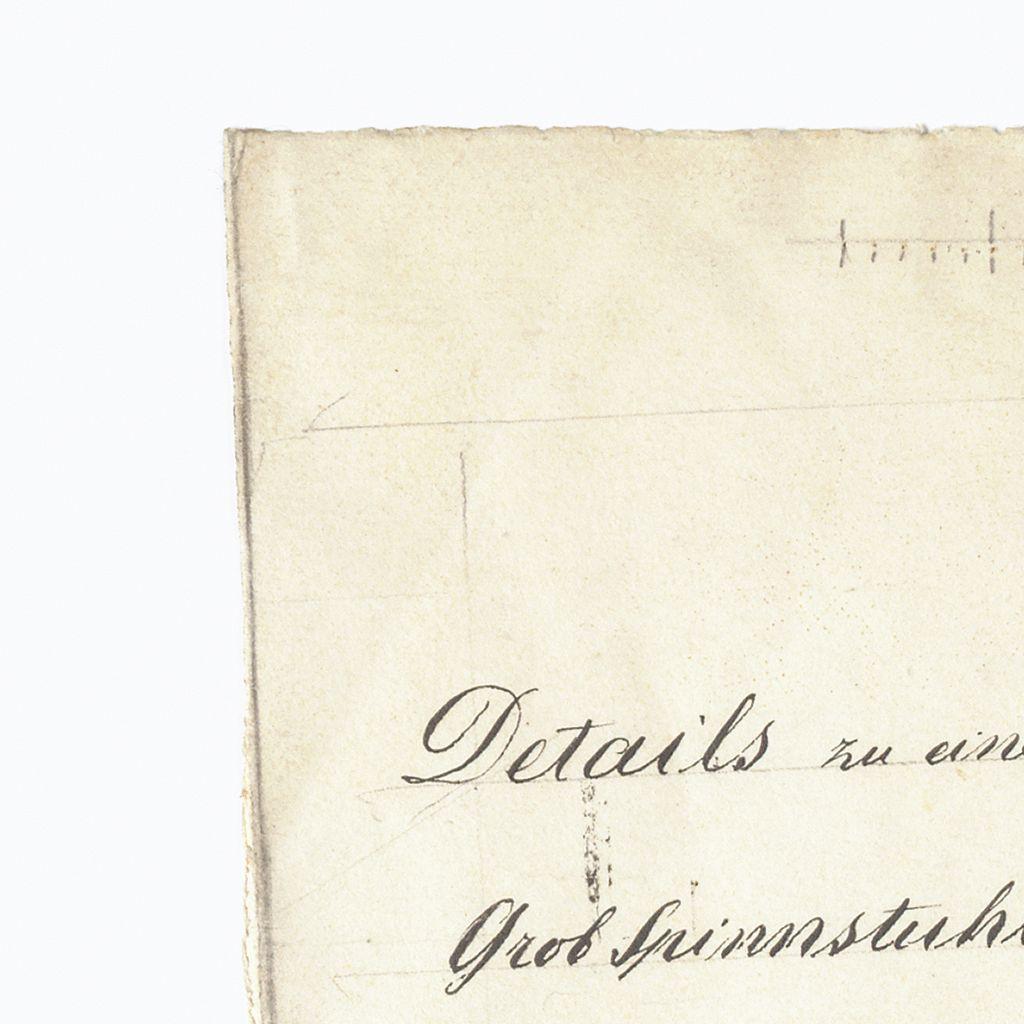 Details zu eine
Grob Spinnstuhl